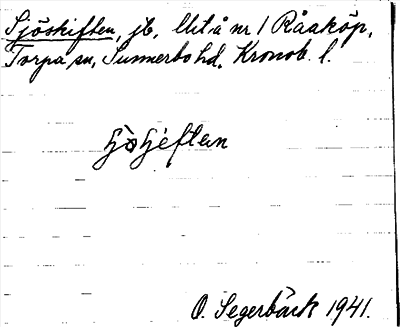 Sjöskiften, jb, litt å nr 1 Råaköp,
Torpa sn, Sunnerbo hd. Kronob. l.
O. Segerbäck 1941.